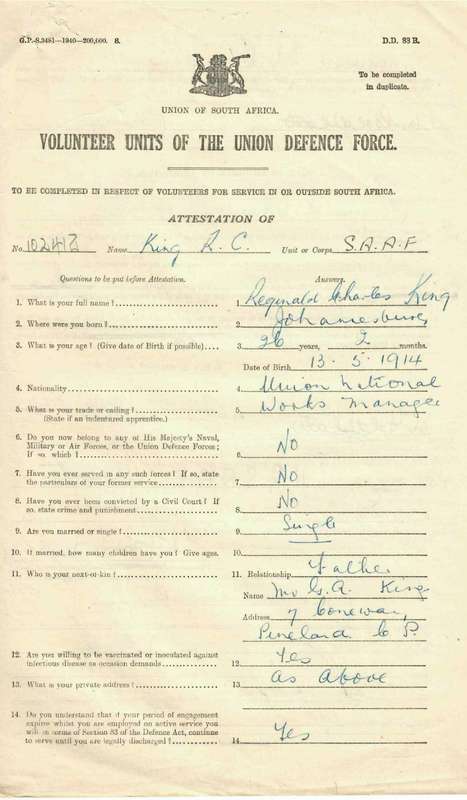 G.P.-S.3481—1940—200,000. S. D.D. 83 B.
To be completed
in duplicate.
UNION OF SOUTH AFRICA.
VOLUNTEER UNITS OF THE UNION DEFENCE FORCE.
TO BE COMPLETED IN RESPECT OF VOLUNTEERS FOR SERVICE IN OR OUTSIDE SOUTH AFRICA.
ATTESTATION OF
No. Name King R. C. Unit or Corps S.A.A.F
Questions to be put before Attestation. Answers.
1. What is your full name? 1. Reginald Charles King
2. Where were you born? 2. Johannesburg
3. What is your age? (Give date of Birth if possible) 3. 26 years, 2 months.
Date of Birth 13.5.1914
4. Nationality 4. Union National
5. What is your trade or calling? 5. Works Manager
(State if an indentured apprentice.)
6. Do you now belong to any of His Majesty's Naval,
Military or Air Forces, or the Union Defence Forces;
If so, which? 6. No
7. Have you ever served in any such forces? If so, state
the particulars of your former service 7. No
8. Have you ever been convicted by a Civil Court? If
so, state crime and punishment 8. No
9. Are you married or single? 9. Single
10. If married, how many children have you? Give ages. 10.
11. Who is your next-of-kin? 11. Relationship Father
Name Mr G.A. King
Address 7
Pineland C P.
12. Are you willing to be vaccinated or inoculated against
infectious disease as occasion demands 12. Yes
13. What is your private address? 13. As Above
14. Do you understand that if your period of engagement
expire whilst you are employed on active service you
will in terms of Section 83 of the Defence Act, continue
to serve until you are legally discharged? 14. Yes